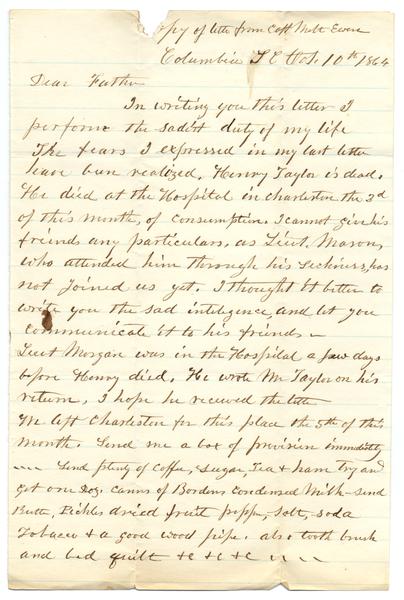 Copy of lette from Capt Milt Ewen
Columbia S C Oct. 10th 1864
Dear Father
In writing you this letter I
perform the sadest duty of my life
The fears I expressed in my last letter
have been realized. Henry Taylor is dead.
He died at the Hospital in Charleston the 3d
of this month, of consumption. I cannot give his
friends any particulars, as Lieut. Mason,
who attended him through his sickness, has
not joined us yet. I thought it better to
write you the sad inteligence and let you
communicate it to his friends —
Lieut Morgan was in the Hospital a few days
before Henry died. He wrote Mr Taylor on his
return. I hope he received the lette
We left Charleston for this place the 5th of this
month. Send me a box of provision immidiately
Send plenty of Coffee, Sugar, Tea & ham try and
get one Doz. Canns of Bordens Condensed Milk - send
Butte, Pickles dried fruit peppe, Salt, soda
Tobacco & a good wood pipe. also tooth brush
and bed quilt & c & c & c